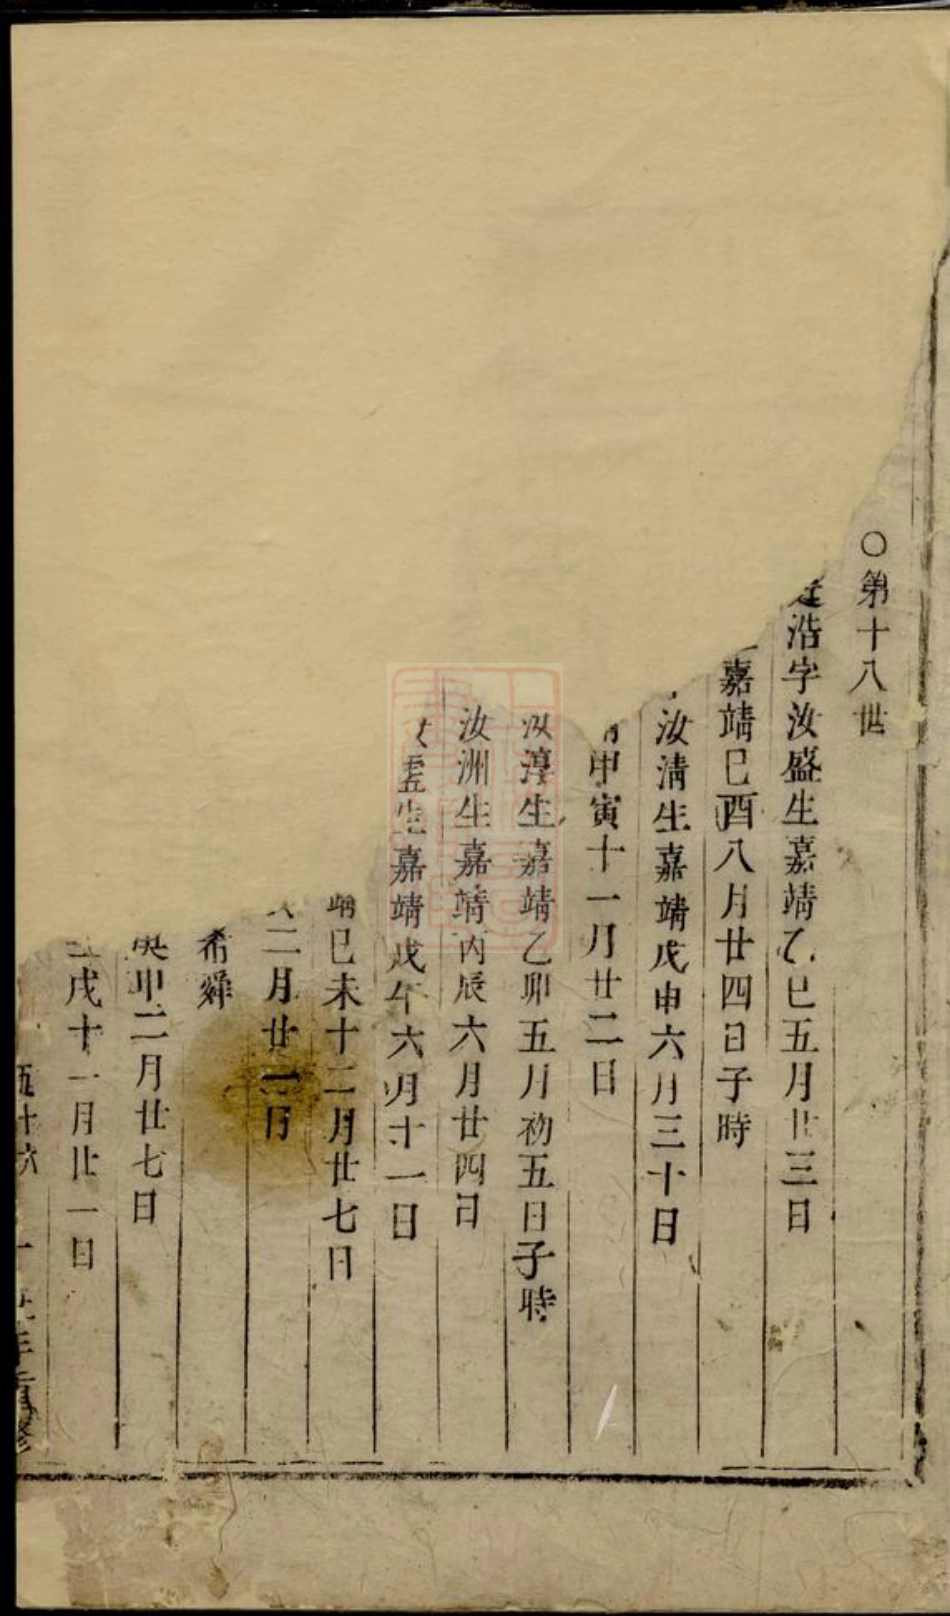 ○第十八世
浩字汝盛生嘉靖乙巳五月廿三日
嘉靖己酉八月廿四日子時
汝清生嘉靖戊申六月三十日
甲寅十一月廿二日
汝淳生嘉靖乙卯五月初五日子時
汝洲生嘉靖丙辰六月廿四日
生嘉靖戊午六月十一日
靖己未十二月廿七日
二月廿二日
希舜
庚申二月廿七日
戌十一月廿一日
五十六
年重修